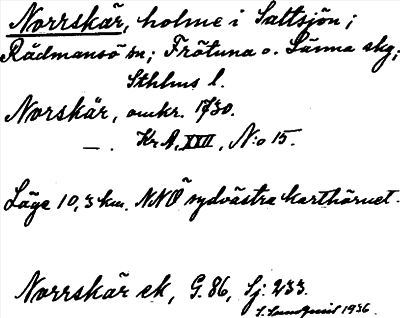 Norrskär, holme i Saltsjön;
Rådmansö sn; Frötuna o. Länna skg;
Sthlms l.
Norskär, omkr. 1730.
— . Kr A, XXII, N:o 15.
Läge 10,3 km. NNÖ sydvästra karthörnet.
Norrskär ek, G. 86, Sj: 233.
S. Lundquist 1936.